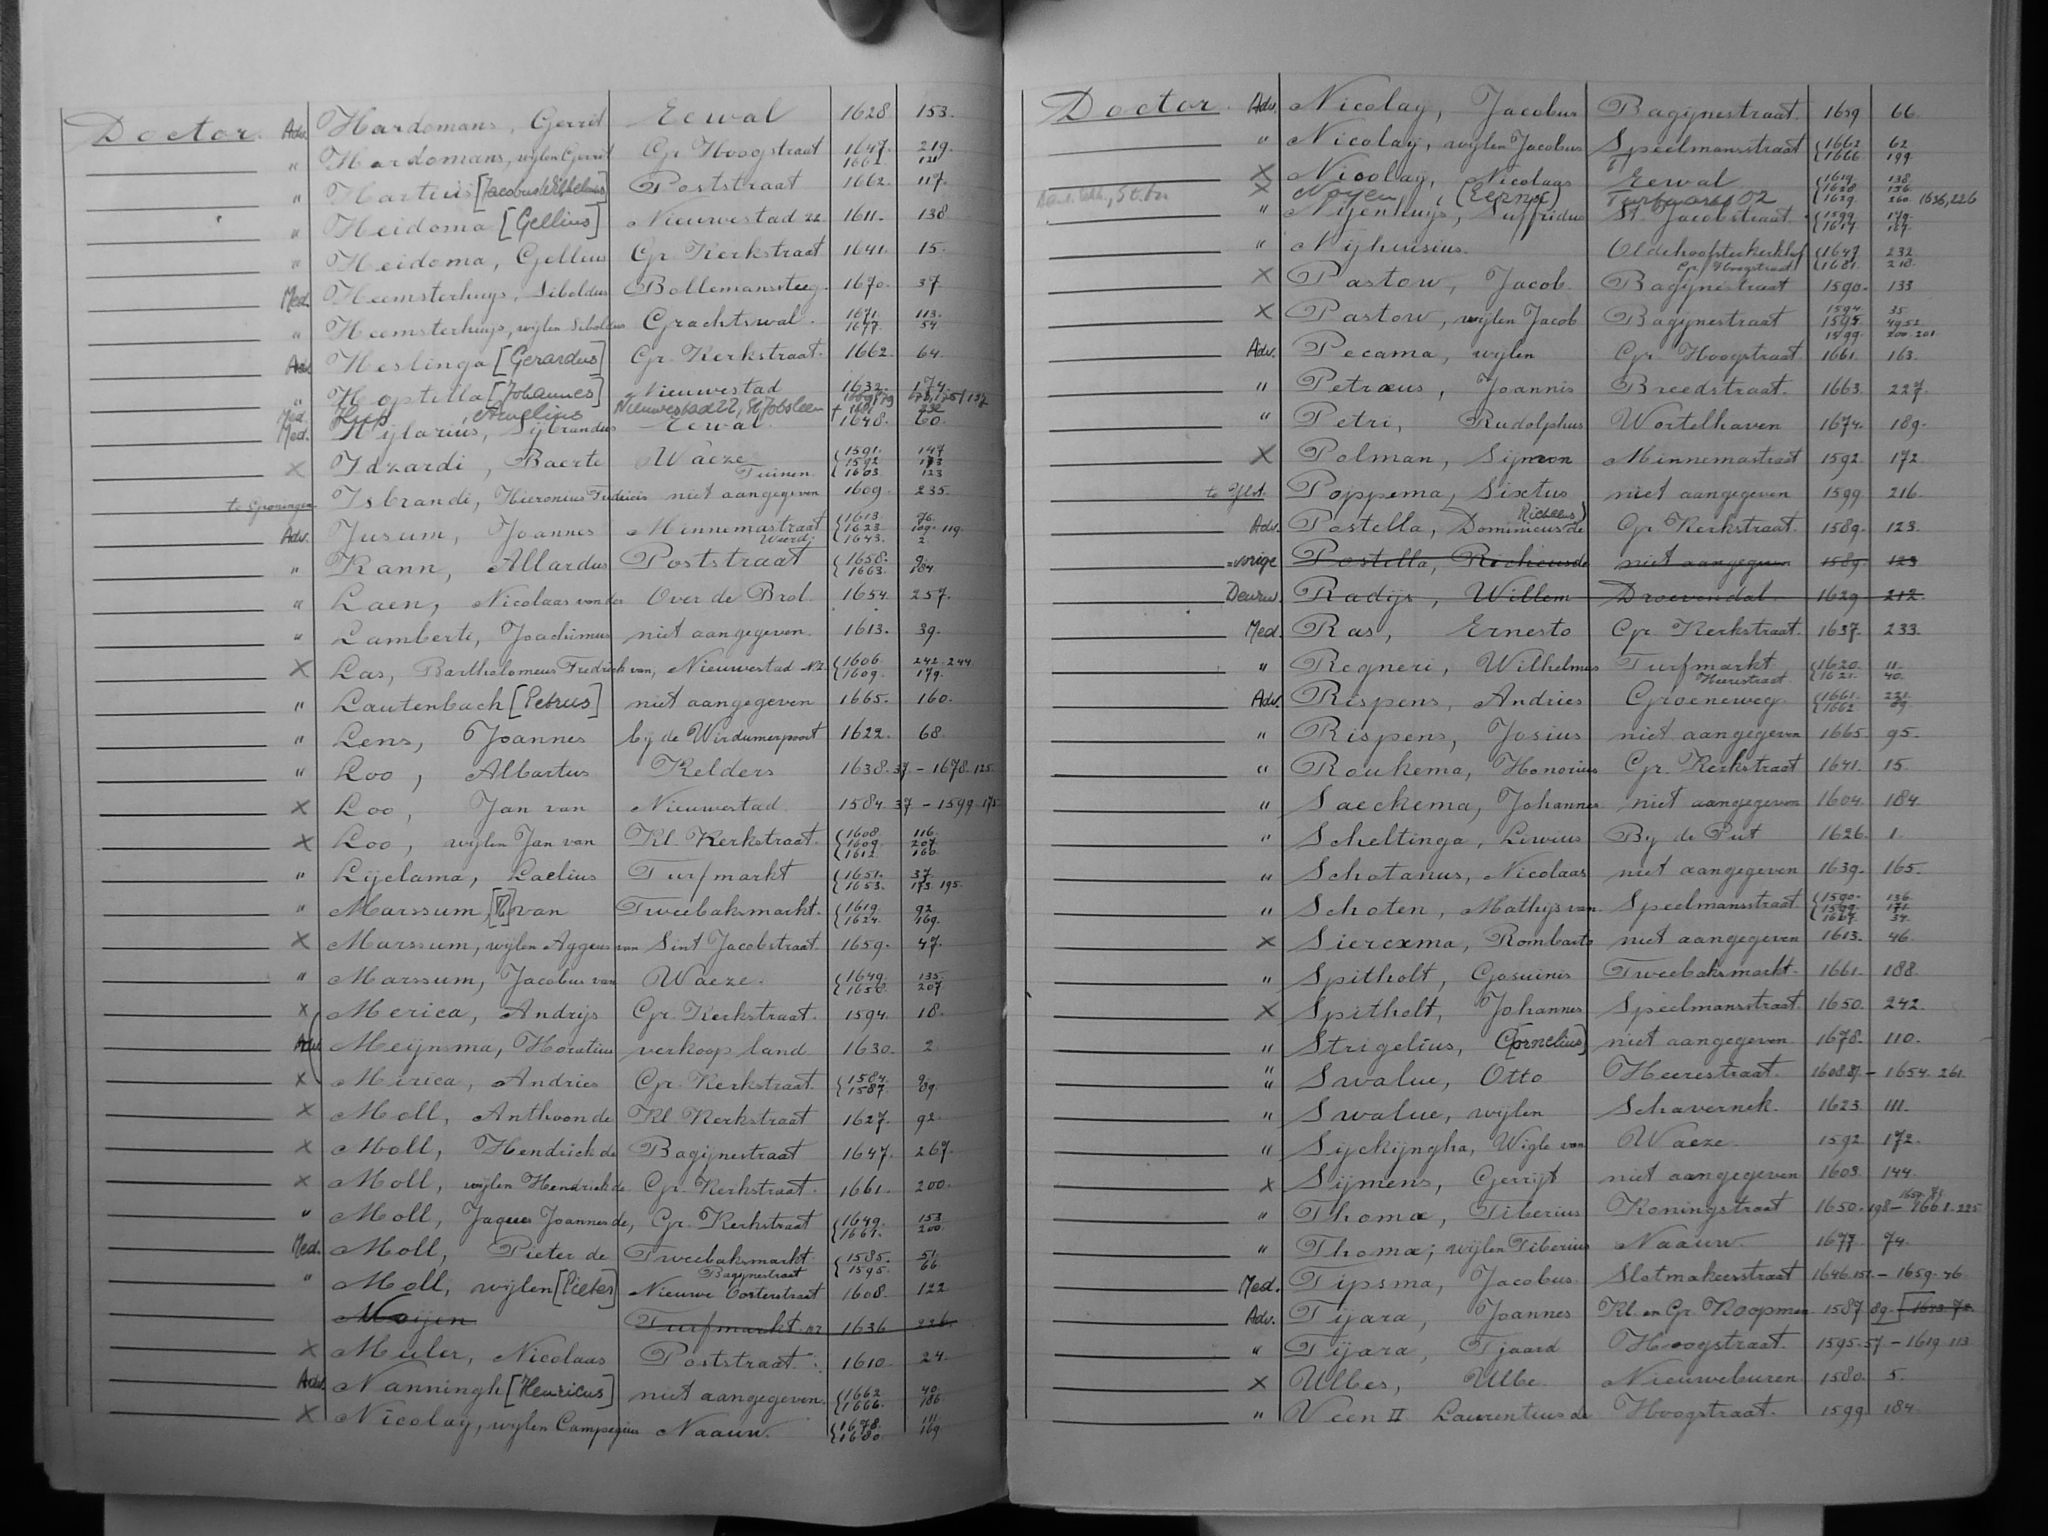 Doctor. Adv. Hardomans, Gerrit Eewal 1628 153.
" Hardomans, wijlen Gerrit Gr. Hoogstraat 1647. 219.
1661. 121
" Hartius [Jacobus Wilhelmus] Poststraat 1662. 117.
" Heidoma [Gellius] Nieuwestad 22 1611. 138
" Heidoma, Gellius Gr. Kerkstraat 1641. 15.
Med. Heemsterhuys, Siboldus Bollemanssteeg. 1670. 37
" Heemsterhuys, wijlen Siboldus Grachtswal. 1671. 113.
1677. 54.
Adv. Heslinga [Gerardus] Gr. Kerkstraat. 1662. 64.
" Hoptilla [Johannes] Nieuwestad 1632. 174.
Med. Aurelius Nieuwestad 22, St Jobsleen
Med. Hylarius, Sijbrandus Eewal. 1648. 60.
X Idzardi, Baerte Waeze 1591. 147
1592 173
Tuinen 1603. 123
te Groningen Isbrandi, Hieronius Fredricis niet aangegeven 1609. 235.
Adv. Jusum, Joannes Minnemastraat 1613. 76.
1623. 109. 119.
Weerdj 1643. 2.
" Kann, Allardus Poststraat 1658. 9.
1663. 184.
" Laen, Nicolaas van der Over de Brol. 1654. 257.
" Lamberti, Joachimus niet aangegeven. 1613. 39.
X Las, Bartholomeus Fredrick van, Nieuwestad NZ. 1606. 242. 244.
1609. 179.
" Lautenbach [Petrus] niet aangegeven 1665. 160.
" Lens, Joannes bij de Wirdumerpoort 1622. 68.
" Loo, Albartus Kelders 1638. 37. – 1678. 125.
X Loo, Jan van Nieuwestad 1584. 37 – 1599. 175.
X Loo, wijlen Jan van Kl. Kerkstraat. 1608. 116.
1609. 207.
1612. 160.
" Lijclama, Laelius Turfmarkt 1651. 37.
1653. 173. 195.
" Marssum, van Tweebaksmarkt. 1619. 92
1624. 169.
X Marssum, wijlen Aggeus van Sint Jacobstraat. 1659. 47.
" Marssum, Jacobus van Waeze. 1649. 135.
1656. 207
X Merica, Andrijs Gr. Kerkstraat. 1594. 18.
Adv. Meijnsma, Horatius verkoop land 1630. 2
X Mirica, Andries Gr. Kerkstraat. 1584. 9.
1587. 89.
X Moll, Anthoon de Kl. Kerkstraat 1627. 92.
X Moll, Hendrick de Bagijnestraat 1647. 267.
X Moll, wijlen Hendrick de Gr. Kerkstraat. 1661. 200.
" Moll, Jaques Joannes de, Gr. Kerkstraat 1649. 153
1661. 200.
Med. Moll, Pieter de Tweebaksmarkt. 1585. 51.
Bagijnestraat 1595. 66.
" Moll, wijlen [Pieter] Nieuwe Oosterstraat 1608. 122
Moijen Turfmarkt. 02 1636 226.
X Muler, Nicolaas Poststraat. 1610. 24.
Adv. Nanningh [Henricus] niet aangegeven. 1662 40.
1666. 186.
X Nicolay, wijlen Campegius Naauw. 1678. 111.
1680. 169.
Doctor. Adv. Nicolay, Jacobus Bagijnestraat. 1659 66.
" Nicolay, wijlen Jacobus Speelmansstraat 1662 62
1666 199.
X Nicolay, Nicolaas Eewal 1619. 138.
1628 156.
1629. 260.
X Noyen, (Eernst) Turfmarkt 02 1636, 226
" Nijenhuys, Suffridus St. Jacobstraat. 1599. 179.
1617.
" Nijhuisius. Oldehoofsterkerkhof 1647 232
Gr. Hoogstraat 1681. 218.
X Pastow, Jacob. Bagijnestraat 1590. 133
X Pastow, wijlen Jacob Bagijnestraat 1594 35
1595. 49.52.
1599. 200. 201.
Adv. Pecama, wijlen Gr. Hoogstraat. 1661. 163.
" Petraeus, Joannis Breedstraat. 1663. 227.
" Petri, Rudolphus Wortelhaven 1674. 189.
X Polman, Sijmon Minnemastraat 1592. 172
te IJlst. Poppema, Sixtus niet aangegeven 1599 216.
Adv. Postella, Dominicus de Richeus) Gr. Kerkstraat. 1589. 123.
=vorige Postella, Richeus de niet aangegeven 1589. 123
Deurw. Radijs, Willem Droevendal 1629 212.
Med. Ras, Ernesto Gr. Kerkstraat. 1637. 233.
" Regneri, Wilhelmus Turfmarkt 1620. 11.
Heerestraat. 1621. 40.
Adv. Rispens, Andries Groeneweg 1661. 221.
1662 89.
" Rispens, Josius niet aangegeven 1665. 95.
" Roukema, Honorius Gr. Kerkstraat 1641. 15.
" Saeckema, Johannes niet aangegeven 1604. 184.
" Scheltinga, Livius By de Put 1626. 1.
" Schotanus, Nicolaas niet aangegeven 1639. 165.
" Schoten, Mathijs van Speelmansstraat. 1590. 136.
1599. 171.
1617. 34.
X Siercxma, Rombarts niet aangegeven 1613. 46.
" Spitholt, Gosuinis Tweebaksmarkt. 1661. 188.
X Spitholt, Johannes Speelmansstraat. 1650. 242.
" Strigelius, C[ornelius] niet aangegeven. 1678. 110.
" Swalue, Otto Heerestraat. 1608.87. – 1654. 261.
" Swalue, wijlen Schavernek. 1623. 111.
" Sijckijngha, Wigle van Waeze. 1592. 172.
X Sijmens, Gerrijt niet aangegeven 1603. 144.
" Thomæ, Tiberius Koningstraat 1650. 198 – 1661. 225
" Thomæ, wijlen Tiberius Naauw. 1677. 74.
Med. Tipsma, Jacobus. Slotmakersstraat 1646. 151. – 1659. 46
Adv. Tijara, Joannes Kl. en Gr. Koopmen 1587 89.
" Tijara, Tjaard Hoogstraat. 1595. 57 – 1619 113
X Ulbes, Ulbe Nieuweburen 1580. 5.
" Veen II Laurentius de Hoogstraat. 1599 184.